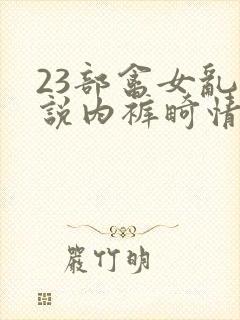 23部畜女亂
說內褲畸情
嚴竹明